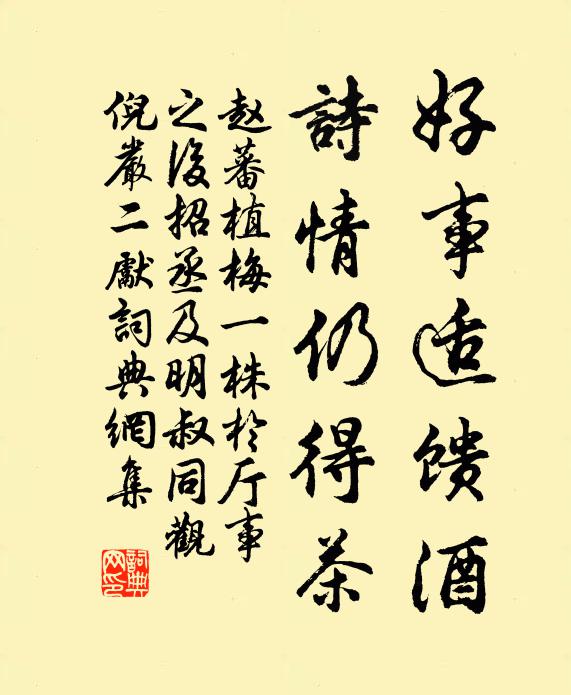 好事适馈酒
詩情仍得茶
赵蕃植梅一株於厅事
之後招丞及明叔同觀
倪嚴二獻詞典網集
詞典网印